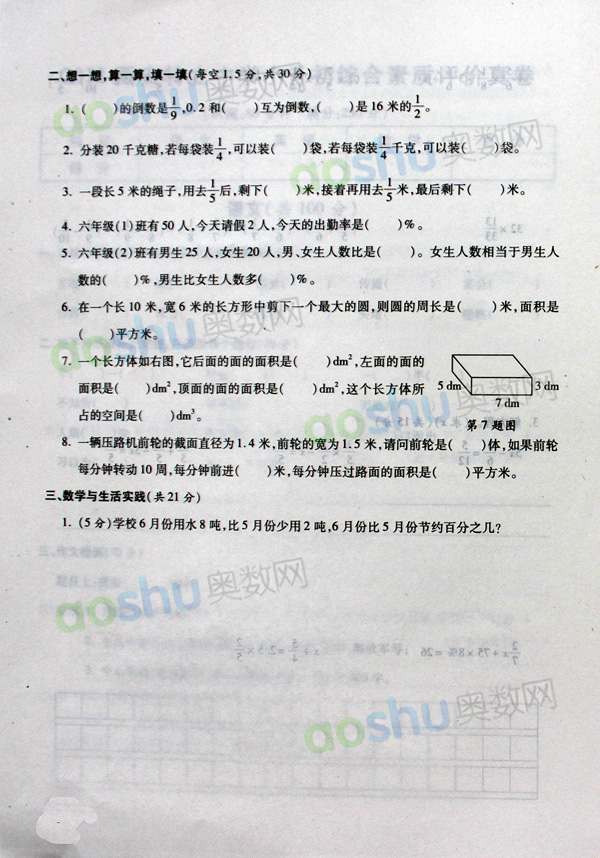 二、想一想,算一算,填一填(每空1.5分,共30分)
1. (　　)的倒数是1/9,0.2和(　　)互为倒数,(　　)是16米的1/2。
2. 分装20千克糖,若每袋装1/4,可以装(　　)袋,若每袋装1/4千克,可以装(　　)袋。
3. 一段长5米的绳子,用去1/5后,剩下(　　)米,接着再用去1/5米,最后剩下(　　)米。
4. 六年级(1)班有50人,今天请假2人,今天的出勤率是(　　)%。
5. 六年级(2)班有男生25人,女生20人,男、女生人数比是(　　)。女生人数相当于男生人
数的(　　)%,男生比女生人数多(　　)%。
6. 在一个长10米,宽6米的长方形中剪下一个最大的圆,则圆的周长是(　　)米,面积是
(　　)平方米。
7. 一个长方体如右图,它后面的面的面积是(　　)dm²,左面的面的
面积是(　　)dm²,顶面的面的面积是(　　)dm²,这个长方体所
占的空间是(　　)dm³。
5 dm
3 dm
7 dm
第7题图
8. 一辆压路机前轮的截面直径为1.4米,前轮的宽为1.5米,请问前轮是(　　)体,如果前轮
每分钟转动10周,每分钟前进(　　)米,每分钟压过路面的面积是(　　)平方米。
三、数学与生活实践(共21分)
1. (5分)学校6月份用水8吨,比5月份少用2吨,6月份比5月份节约百分之几?
aoshu奥数网
aoshu奥数网
aoshu奥数网
aoshu奥数网
aoshu奥数网
aoshu奥数网